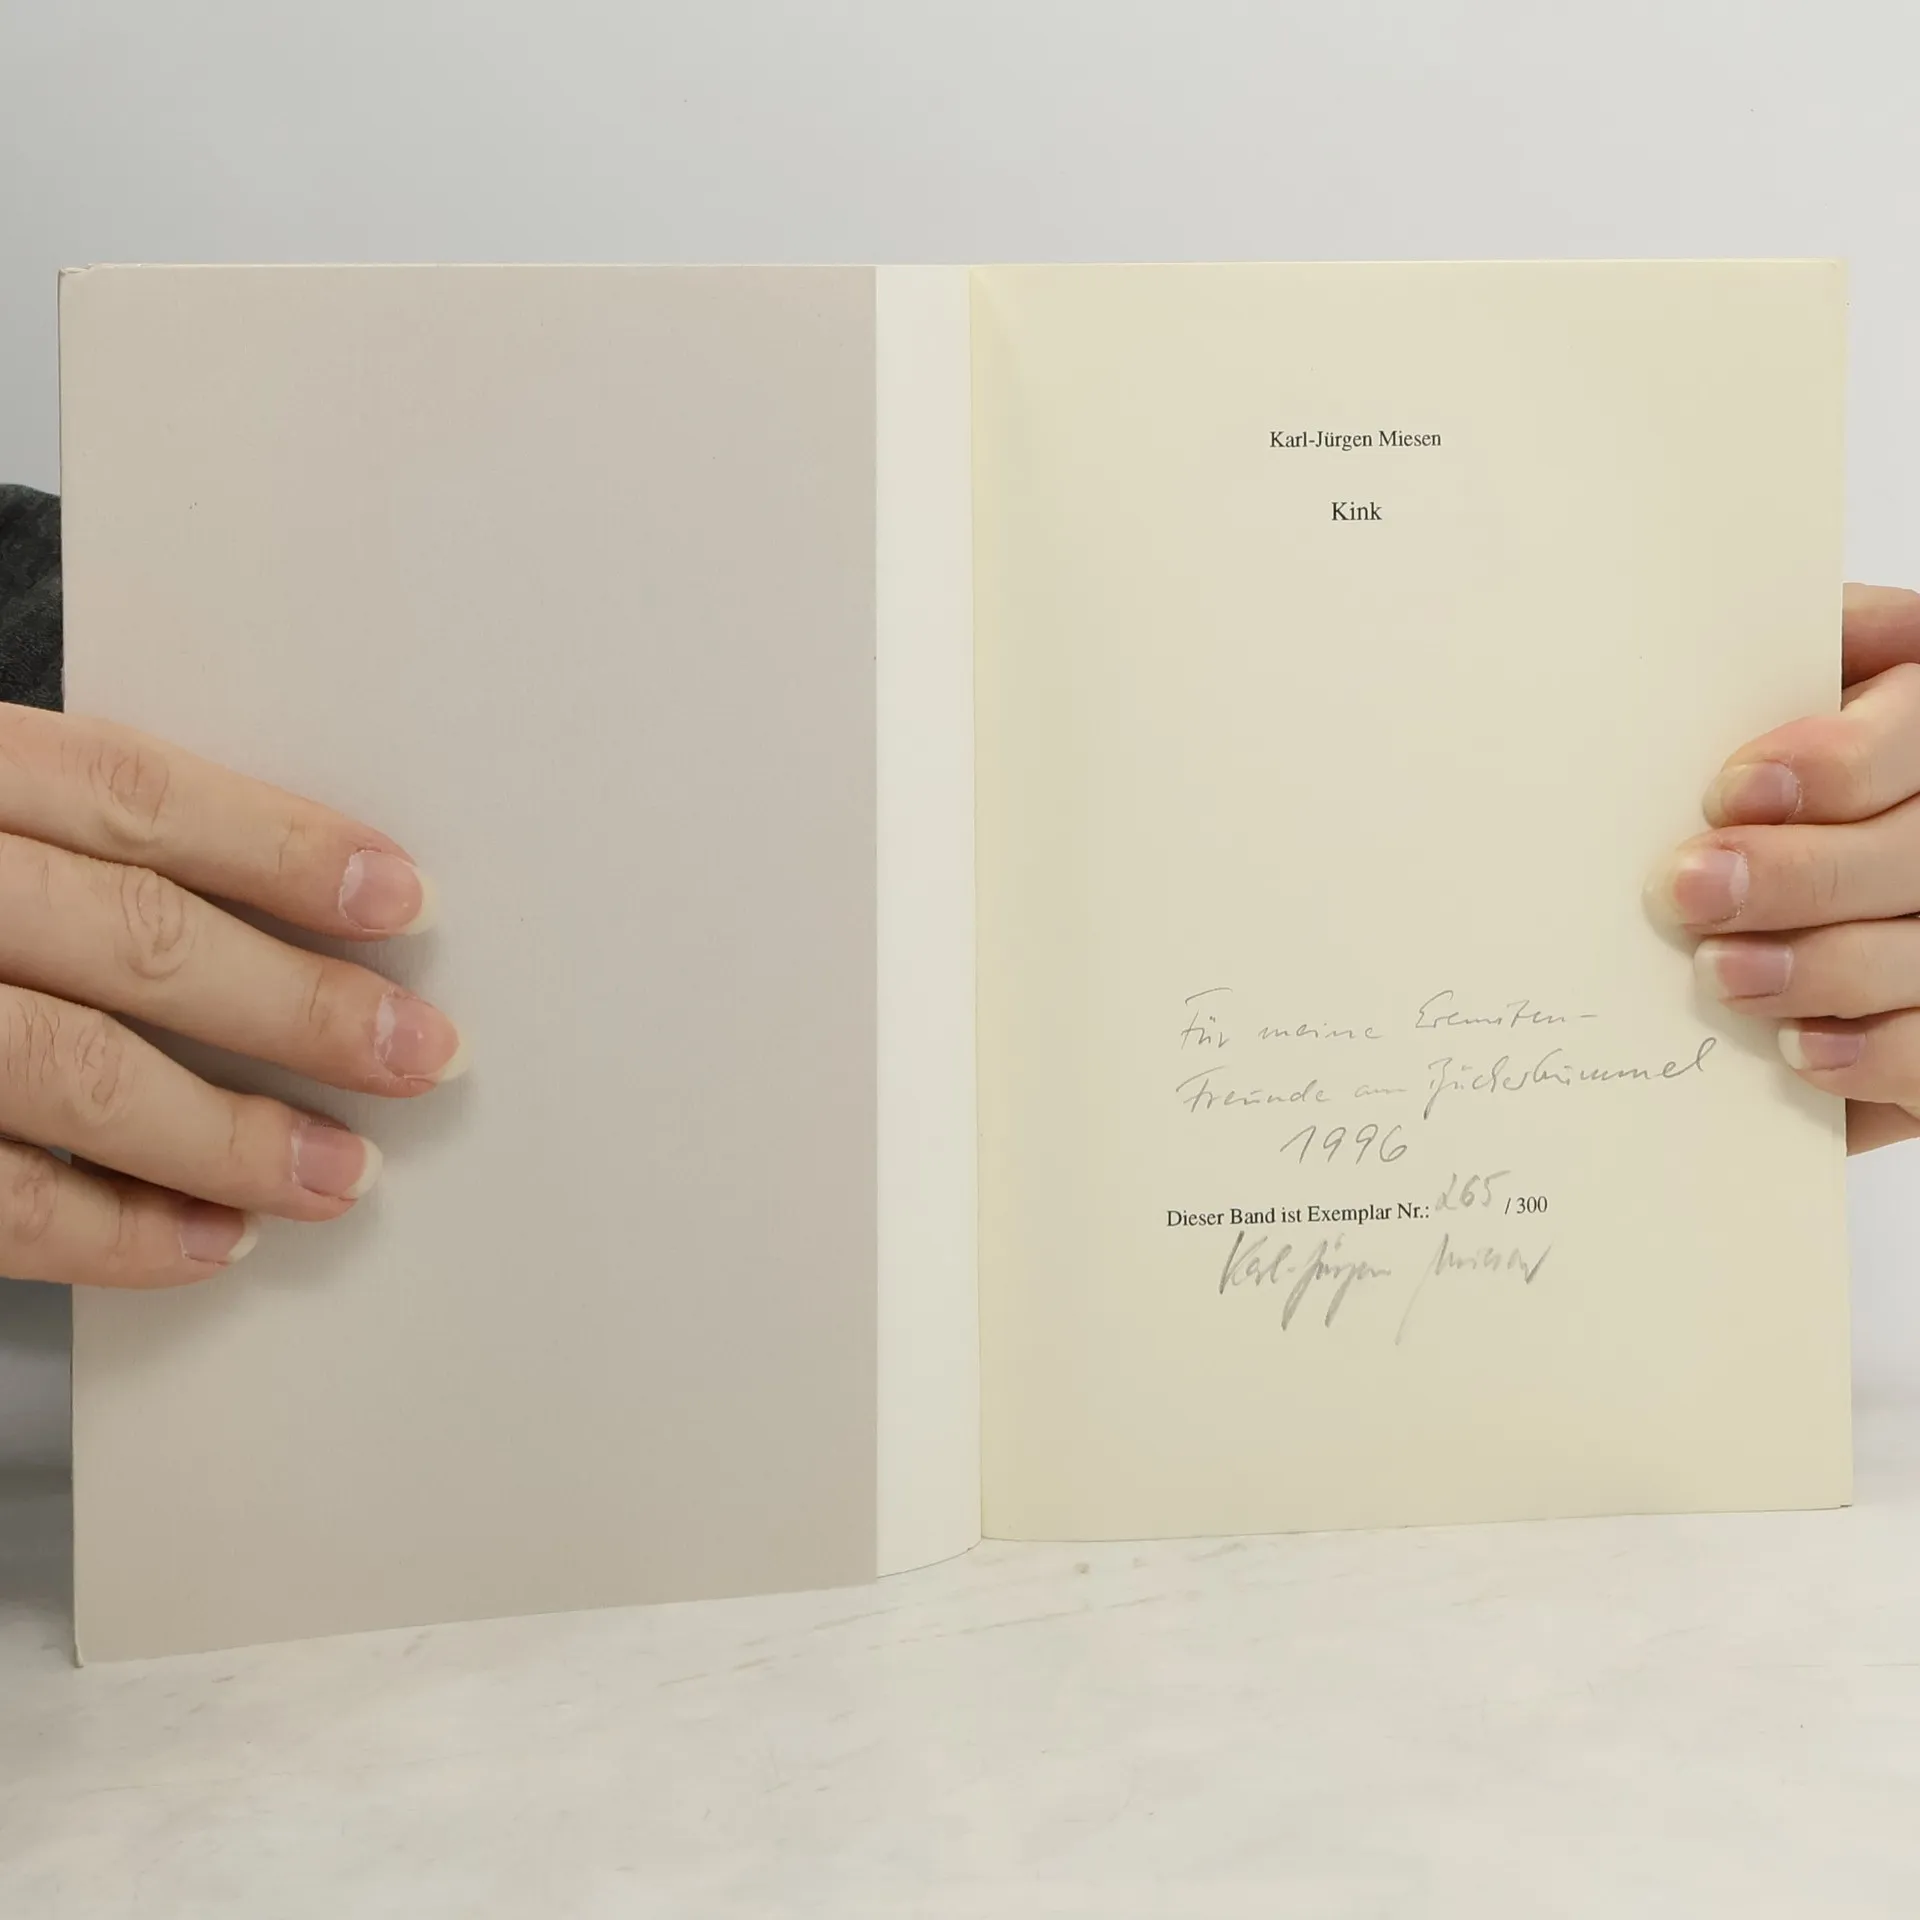 Karl-Jürgen Miesen
Kink
Für meine Eremiten-
Freunde am Bücherbummel
1996
Dieser Band ist Exemplar Nr.: 265 / 300
Karl-Jürgen Miesen